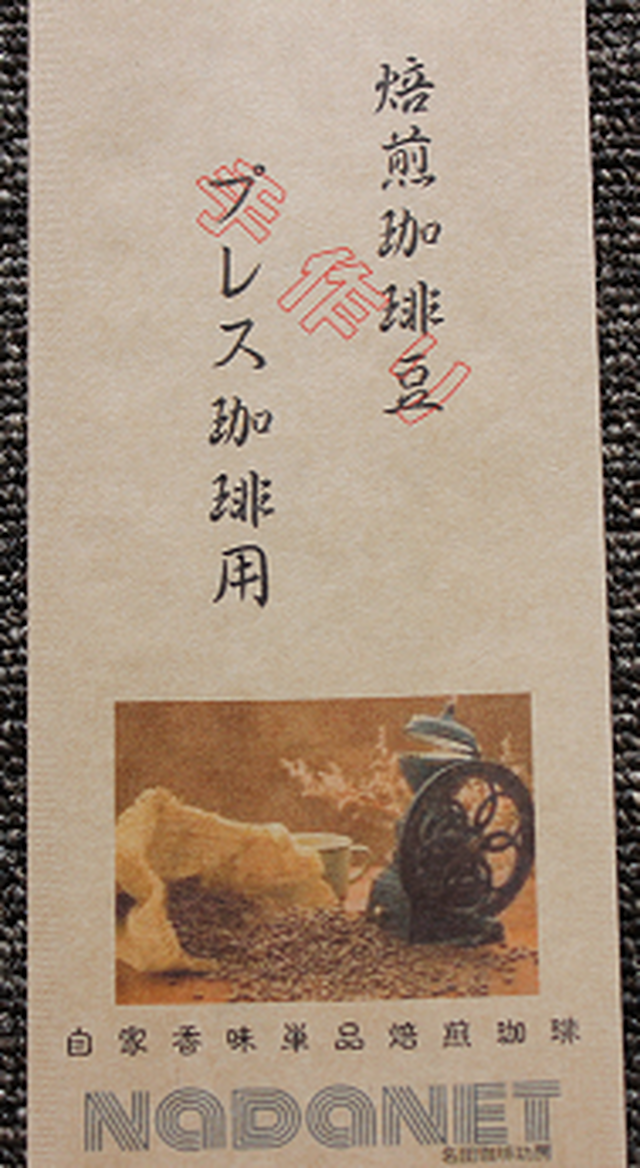 焙煎珈琲豆
プレス珈琲用
自家香味単品焙煎珈琲
NADANET